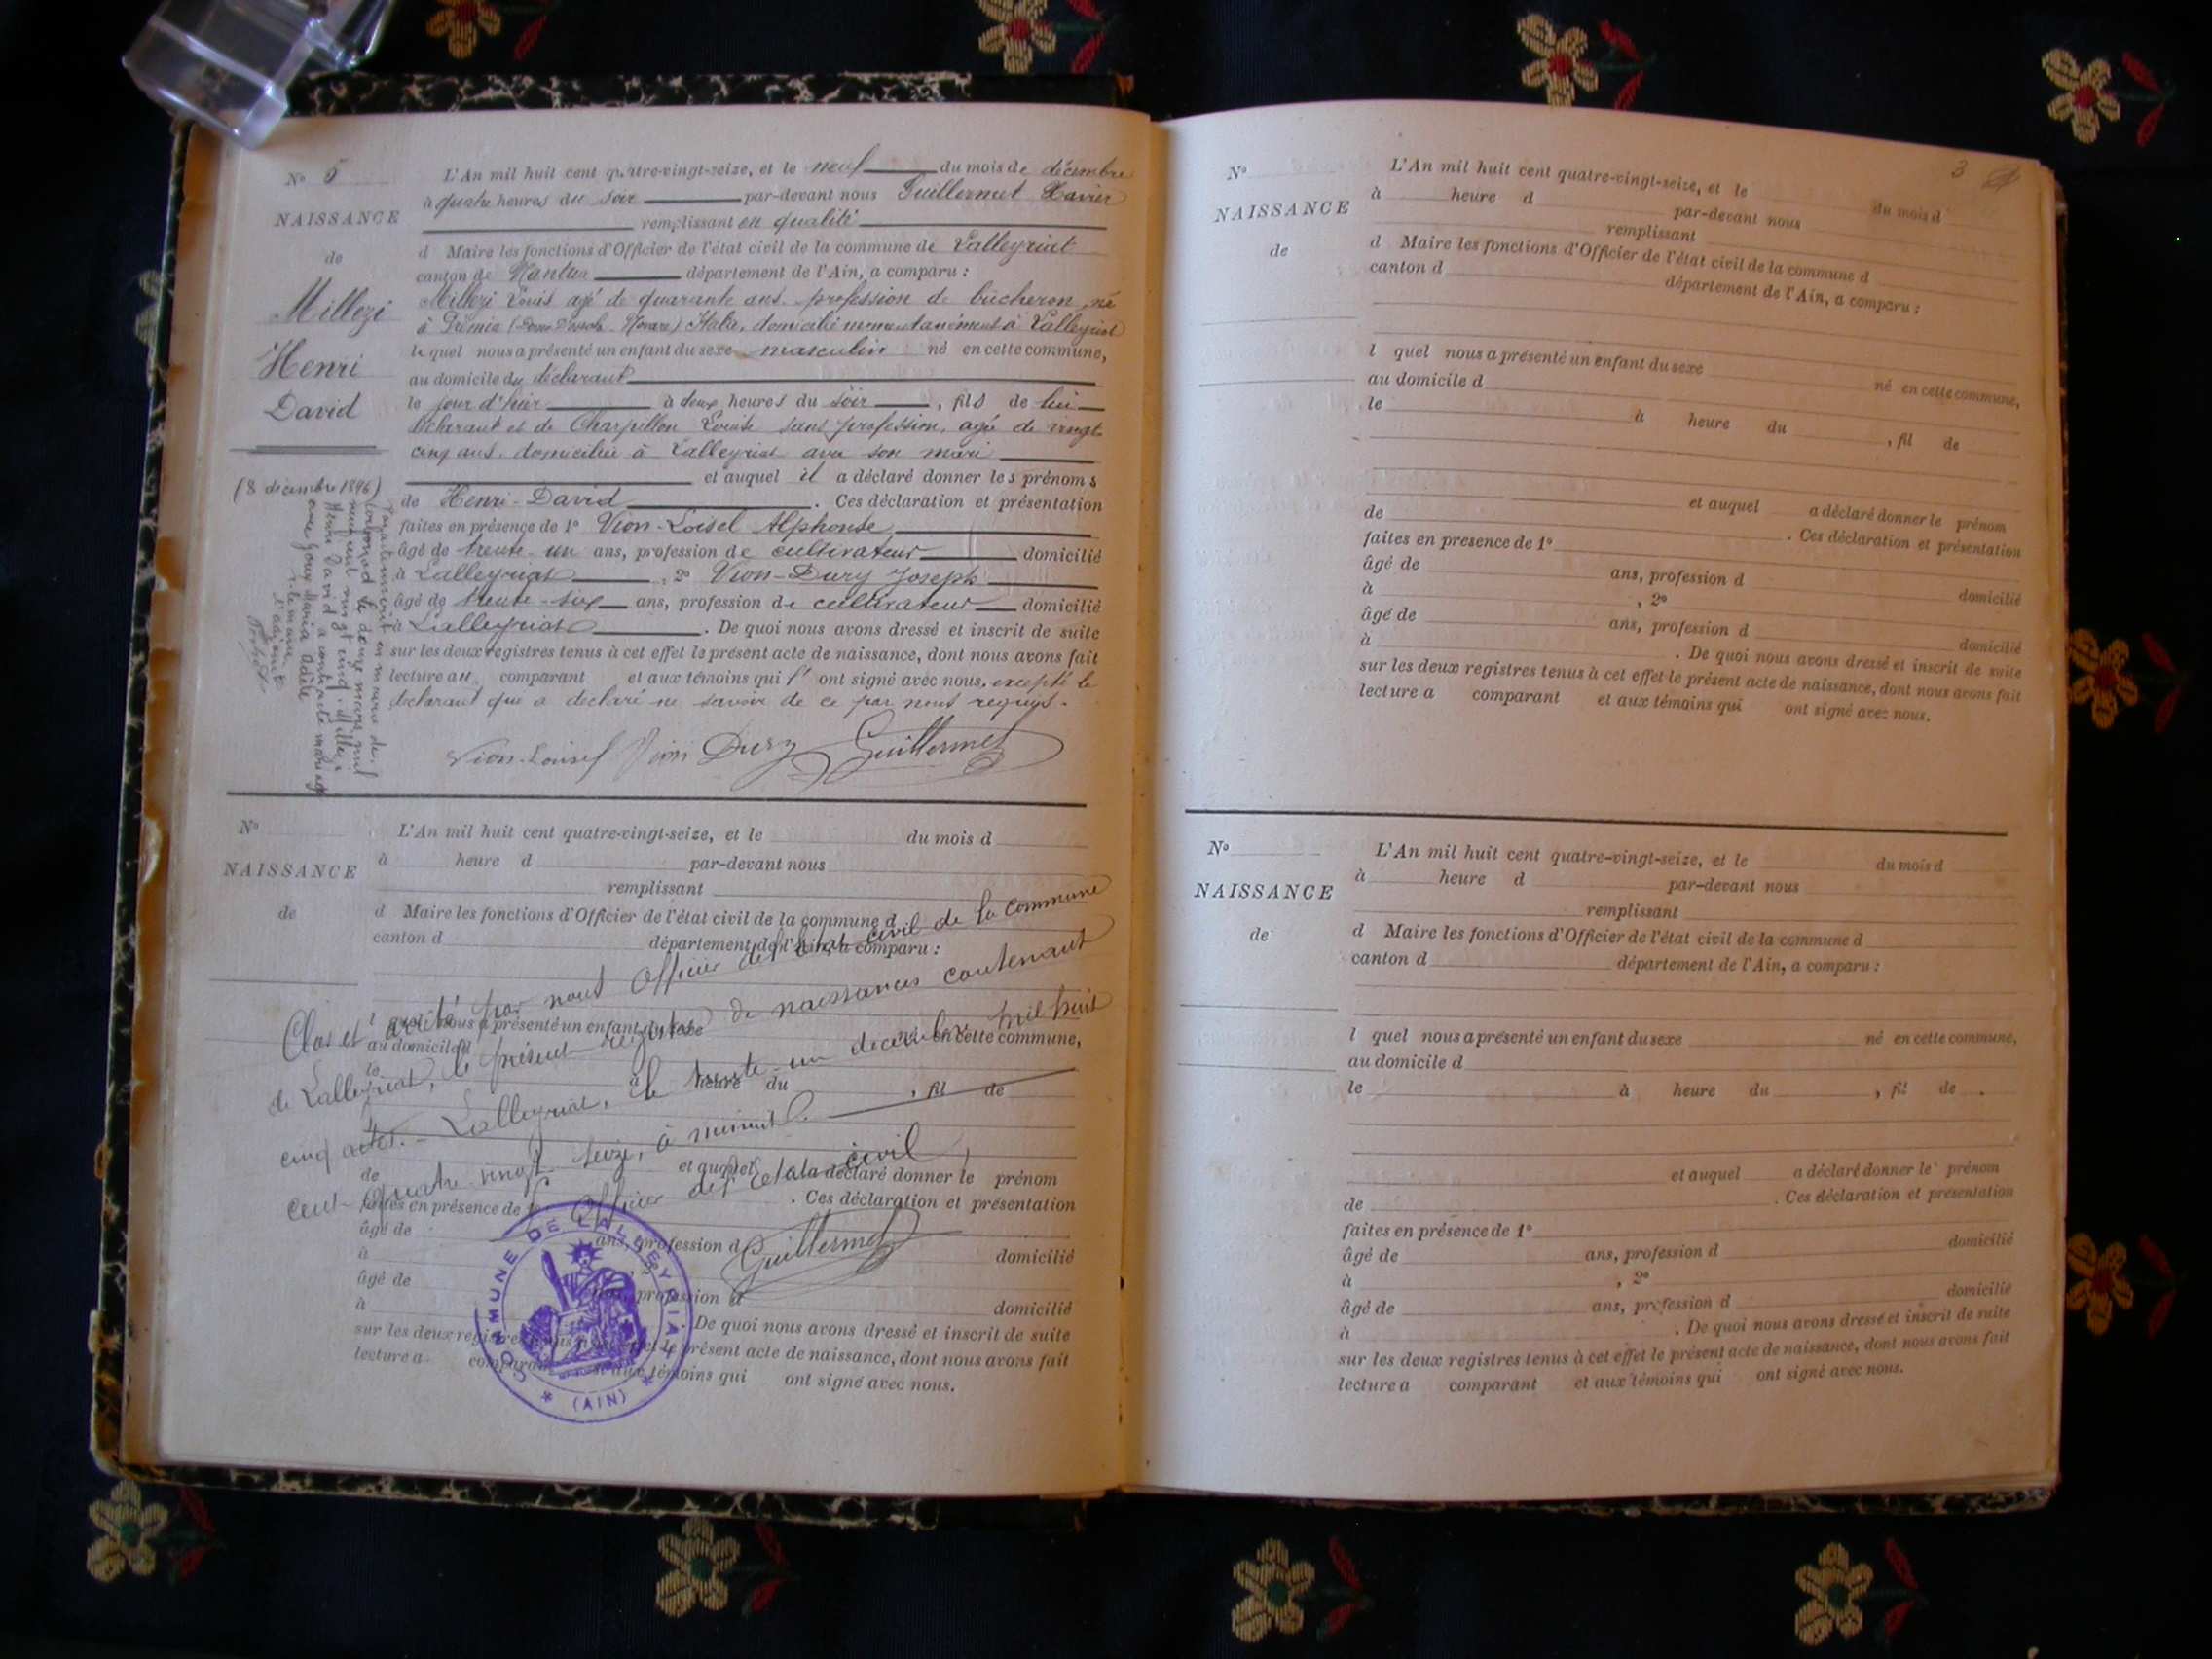 N° 5
NAISSANCE
de
Millezi
Henri
David
(8 décembre 1896)
L'An mil huit cent quatre-vingt-seize, et le neuf du mois de décembre
à quatre heures du soir par-devant nous Guillermet Xavier
remplissant en qualité
d Maire les fonctions d'Officier de l'état civil de la commune de Lalleyriat
canton de Nantua département de l'Ain, a comparu :
Millezi Louis agé de quarante ans profession de bûcheron né
à Italie, domicilié momentanément à Lalleyriat
lequel nous a présenté un enfant du sexe masculin né en cette commune,
au domicile du déclarant
le jour d'hier à deux heures du soir, fils de lui
déclarant et de Charpillon Louise sans profession, agée de vingt
cinq ans, domiciliée à Lalleyriat avec son mari
et auquel il a déclaré donner les prénoms
de Henri-David. Ces déclaration et présentation
faites en présence de 1° Vion-Loisel Alphonse
âgé de trente-un ans, profession de cultivateur domicilié
à Lalleyriat, 2° Vion-Dury Joseph
âgé de trente-six ans, profession de cultivateur domicilié
à Lalleyriat. De quoi nous avons dressé et inscrit de suite
sur les deux registres tenus à cet effet le présent acte de naissance, dont nous avons fait
lecture au comparant et aux témoins qui l' ont signé avec nous, excepté le
déclarant que a declaré ne savoir de ce par nous requis.
Vion-Loisel Vion Dury Guillermet
mil
neuf cent vingt cinq, Millezi
Henri David a contracté mariage
avec Joux Maria Adèle
N°
NAISSANCE
de
L'An mil huit cent quatre-vingt-seize, et le du mois d
à heure d par-devant nous
remplissant
d Maire les fonctions d'Officier de l'état civil de la commune d
canton d département de l'Ain, a comparu :
l quel nous a présenté un enfant du sexe né en cette commune,
au domicile d
le à heure du , fil de
et auquel a déclaré donner le prénom
de . Ces déclaration et présentation
faites en présence de 1°
âgé de ans, profession d
à , 2° domicilié
âgé de ans, profession d
à domicilié
. De quoi nous avons dressé et inscrit de suite
sur les deux registres tenus à cet effet le présent acte de naissance, dont nous avons fait
lecture a comparant et aux témoins qui ont signé avec nous.
Clos et arrêté par nous Officier de l'état civil de la commune
de Lalleyriat, le présent registre de naissances contenant
cinq actes. - Lalleyriat, le trente-un décembre mil huit
cent quatre vingt seize, à minuit.
L'Officier de l'état civil,
Guillermet
COMMUNE DE LALLEYRIAT
* (AIN) *
3
N°
NAISSANCE
de
L'An mil huit cent quatre-vingt-seize, et le du mois d
à heure d par-devant nous
remplissant
d Maire les fonctions d'Officier de l'état civil de la commune d
canton d département de l'Ain, a comparu :
l quel nous a présenté un enfant du sexe né en cette commune,
au domicile d
le à heure du , fil de
et auquel a déclaré donner le prénom
de . Ces déclaration et présentation
faites en presence de 1°
âgé de ans, profession d
à , 2° domicilié
âgé de ans, profession d
à domicilié
. De quoi nous avons dressé et inscrit de suite
sur les deux registres tenus à cet effet le présent acte de naissance, dont nous avons fait
lecture a comparant et aux témoins qui ont signé avec nous.
N°
NAISSANCE
de
L'An mil huit cent quatre-vingt-seize, et le du mois d
à heure d par-devant nous
remplissant
d Maire les fonctions d'Officier de l'état civil de la commune d
canton d département de l'Ain, a comparu :
l quel nous a présenté un enfant du sexe né en cette commune,
au domicile d
le à heure du , fil de
et auquel a déclaré donner le prénom
de . Ces déclaration et présentation
faites en présence de 1°
âgé de ans, profession d domicilié
à , 2°
âgé de ans, profession d domicilié
à . De quoi nous avons dressé et inscrit de suite
sur les deux registres tenus à cet effet le présent acte de naissance, dont nous avons fait
lecture a comparant et aux témoins qui ont signé avec nous.